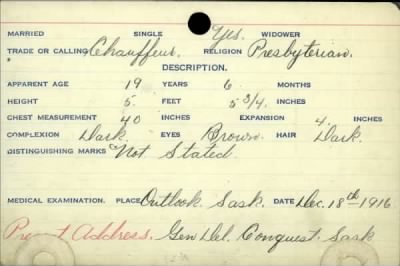 MARRIED SINGLE Yes. WIDOWER
TRADE OR CALLING Chauffeur. RELIGION Presbyterian.
DESCRIPTION.
APPARENT AGE 19 YEARS 6 MONTHS
HEIGHT 5 FEET 5 3/4 INCHES
CHEST MEASUREMENT 40 INCHES EXPANSION 4 INCHES
COMPLEXION Dark. EYES Brown. HAIR Dark.
DISTINGUISHING MARKS Not Stated
MEDICAL EXAMINATION. PLACE Outlook. Sask. DATE Dec. 18th 1916
Present Address. Gen Del. Conquest. Sask